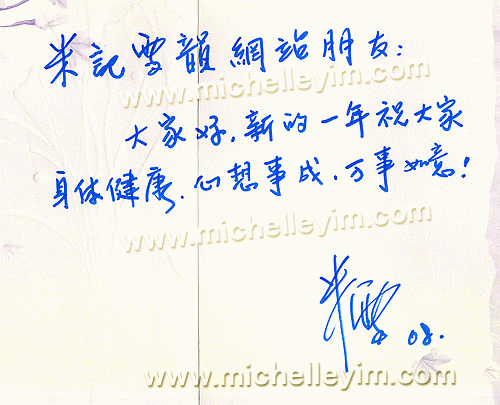 米記雪韻網站朋友：
www.michelleyim.com
大家好，新的一年祝大家
身体健康，心想事成，万事如意！
www.michelleyim.com
米雪 08.
www.michelleyim.com